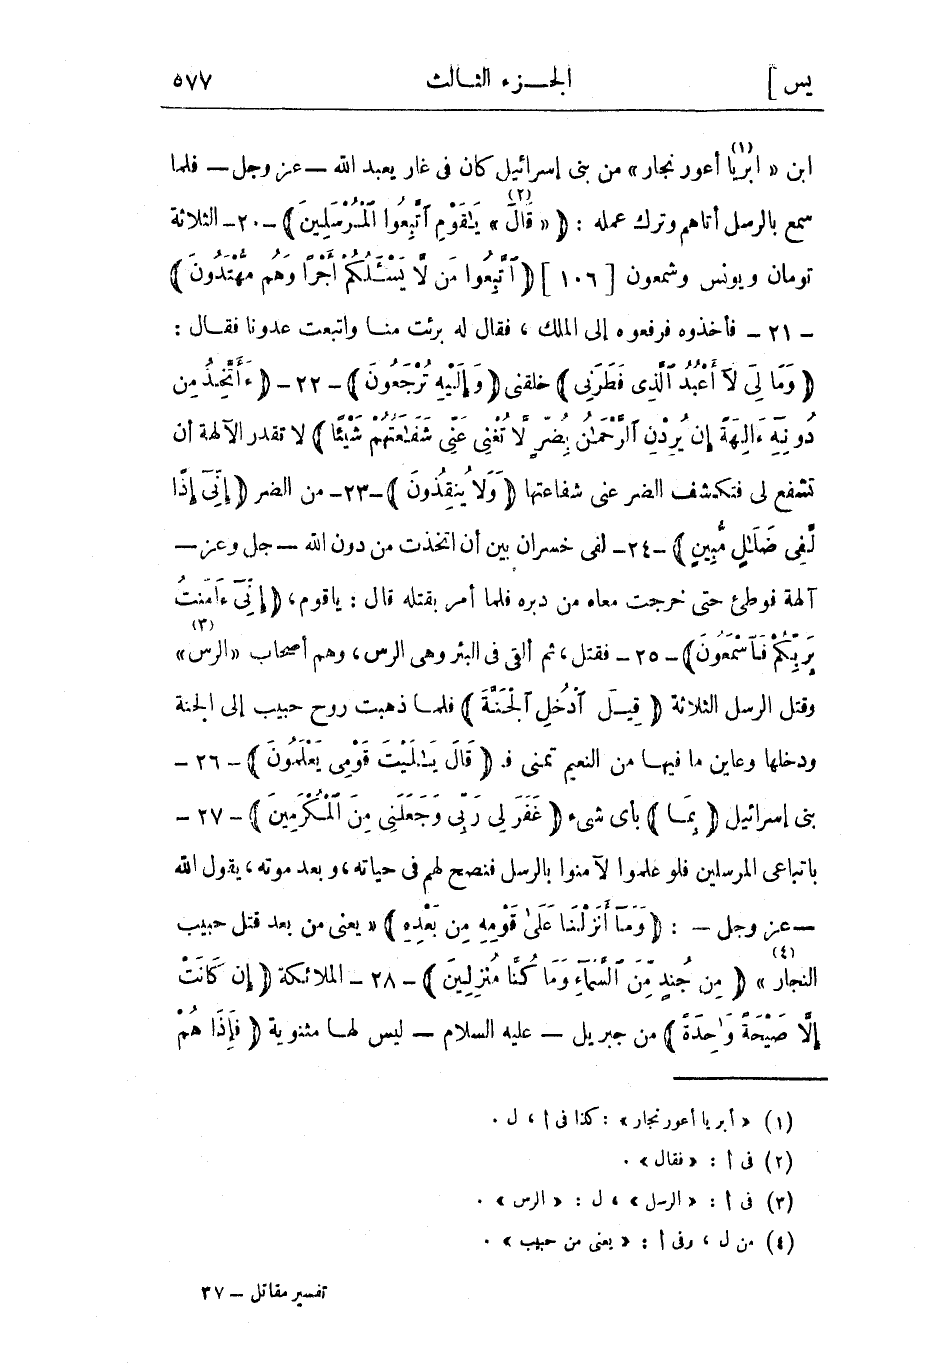 يس ] الجـــزء الثـالث ٥٧٧
ابن « ابريا أعور نجار(١) » من بنى إسرائيل كان فى غار يعبد الله ــ عز وجل ــ فلما
سمع بالرسل أتاهم وترك عمله : ( « قَالَ(٢) » يَـٰقَوْمِ ٱتَّبِعُوا ٱلْمُرْسَلِينَ ) ــ ٢٠ ــ الثلاثة
تومان ويونس وشمعون [ ١٠٦ ] ( ٱتَّبِعُوا مَن لَّا يَسْـَٔلُكُمْ أَجْرًا وَهُم مُّهْتَدُونَ )
ــ ٢١ ــ فأخذوه فرفعوه إلى الملك ، فقال له برئت منـا واتبعت عدونا فقـال :
( وَمَا لِىَ لَآ أَعْبُدُ ٱلَّذِى فَطَرَنِى ) خلقنى ( وَإِلَيْهِ تُرْجَعُونَ ) ــ ٢٢ ــ ( ءَأَتَّخِذُ مِن
دُونِهِٓ ءَالِهَةً إِن يُرِدْنِ ٱلرَّحْمَـٰنُ بِضُرٍّ لَّا تُغْنِ عَنِّى شَفَـٰعَتُهُمْ شَيْئًا ) لا تقدر الآلهة أن
تشفع لى فتكشف الضر عنى شفاعتها ( وَلَا يُنقِذُونَ ) ــ ٢٣ ــ من الضر ( إِنِّىٓ إِذًا
لَّفِى ضَلَـٰلٍ مُّبِينٍ ) ــ ٢٤ ــ لفى خسران بين أن اتخذت من دون الله ــ جل وعز ــ
آلهة فوطئ حتى خرجت معاه من دبره فلما أمر بقتله قال : ياقوم ، ( إِنِّىٓ ءَامَنتُ
بِرَبِّكُمْ فَٱسْمَعُونَ ) ــ ٢٥ ــ فقتل ، ثم ألقى فى البئر وهى الرس ، وهم أصحاب « الرس(٣) »
وقتل الرسل الثلاثة ( قِيـلَ ٱدْخُلِ ٱلْجَنَّةَ ) فلمـا ذهبت روح حبيب إلى الجنة
ودخلها وعاين ما فيهـا من النعيم تمنى فـ ( قَالَ يَـٰلَيْتَ قَوْمِى يَعْلَمُونَ ) ــ ٢٦ ــ
بنى إسرائيل ( بِمَـا ) بأى شىء ( غَفَرَ لِى رَبِّى وَجَعَلَنِى مِنَ ٱلْمُكْرَمِينَ ) ــ ٢٧ ــ
باتباعى المرسلين فلو علموا لآمنوا بالرسل فنصح لهم فى حياته ، وبعد موته ، يقول الله
ــ عز وجل ــ : ( وَمَـآ أَنزَلْنَـا عَلَىٰ قَوْمِهِ مِن بَعْدِهِ ) « يعنى من بعد قتل حبيب
النجار(٤) » ( مِن جُندٍ مِّنَ ٱلسَّمَآءِ وَمَا كُنَّا مُنزِلِينَ ) ــ ٢٨ ــ الملائكة ( إِن كَانَتْ
إِلَّا صَيْحَةً وَٰحِدَةً ) من جبريل ــ عليه السلام ــ ليس لهـا مثنوية ( فَإِذَا هُمْ
(١) « أبريا أعور نجار » : كذا فى أ ، ل .
(٢) فى أ : « فقال » .
(٣) فى أ : « الرسل » ، ل : « الرس » .
(٤) من ل ، وفى أ : « يعنى من حبيب » .
تفسير مقاتل ــ ٣٧